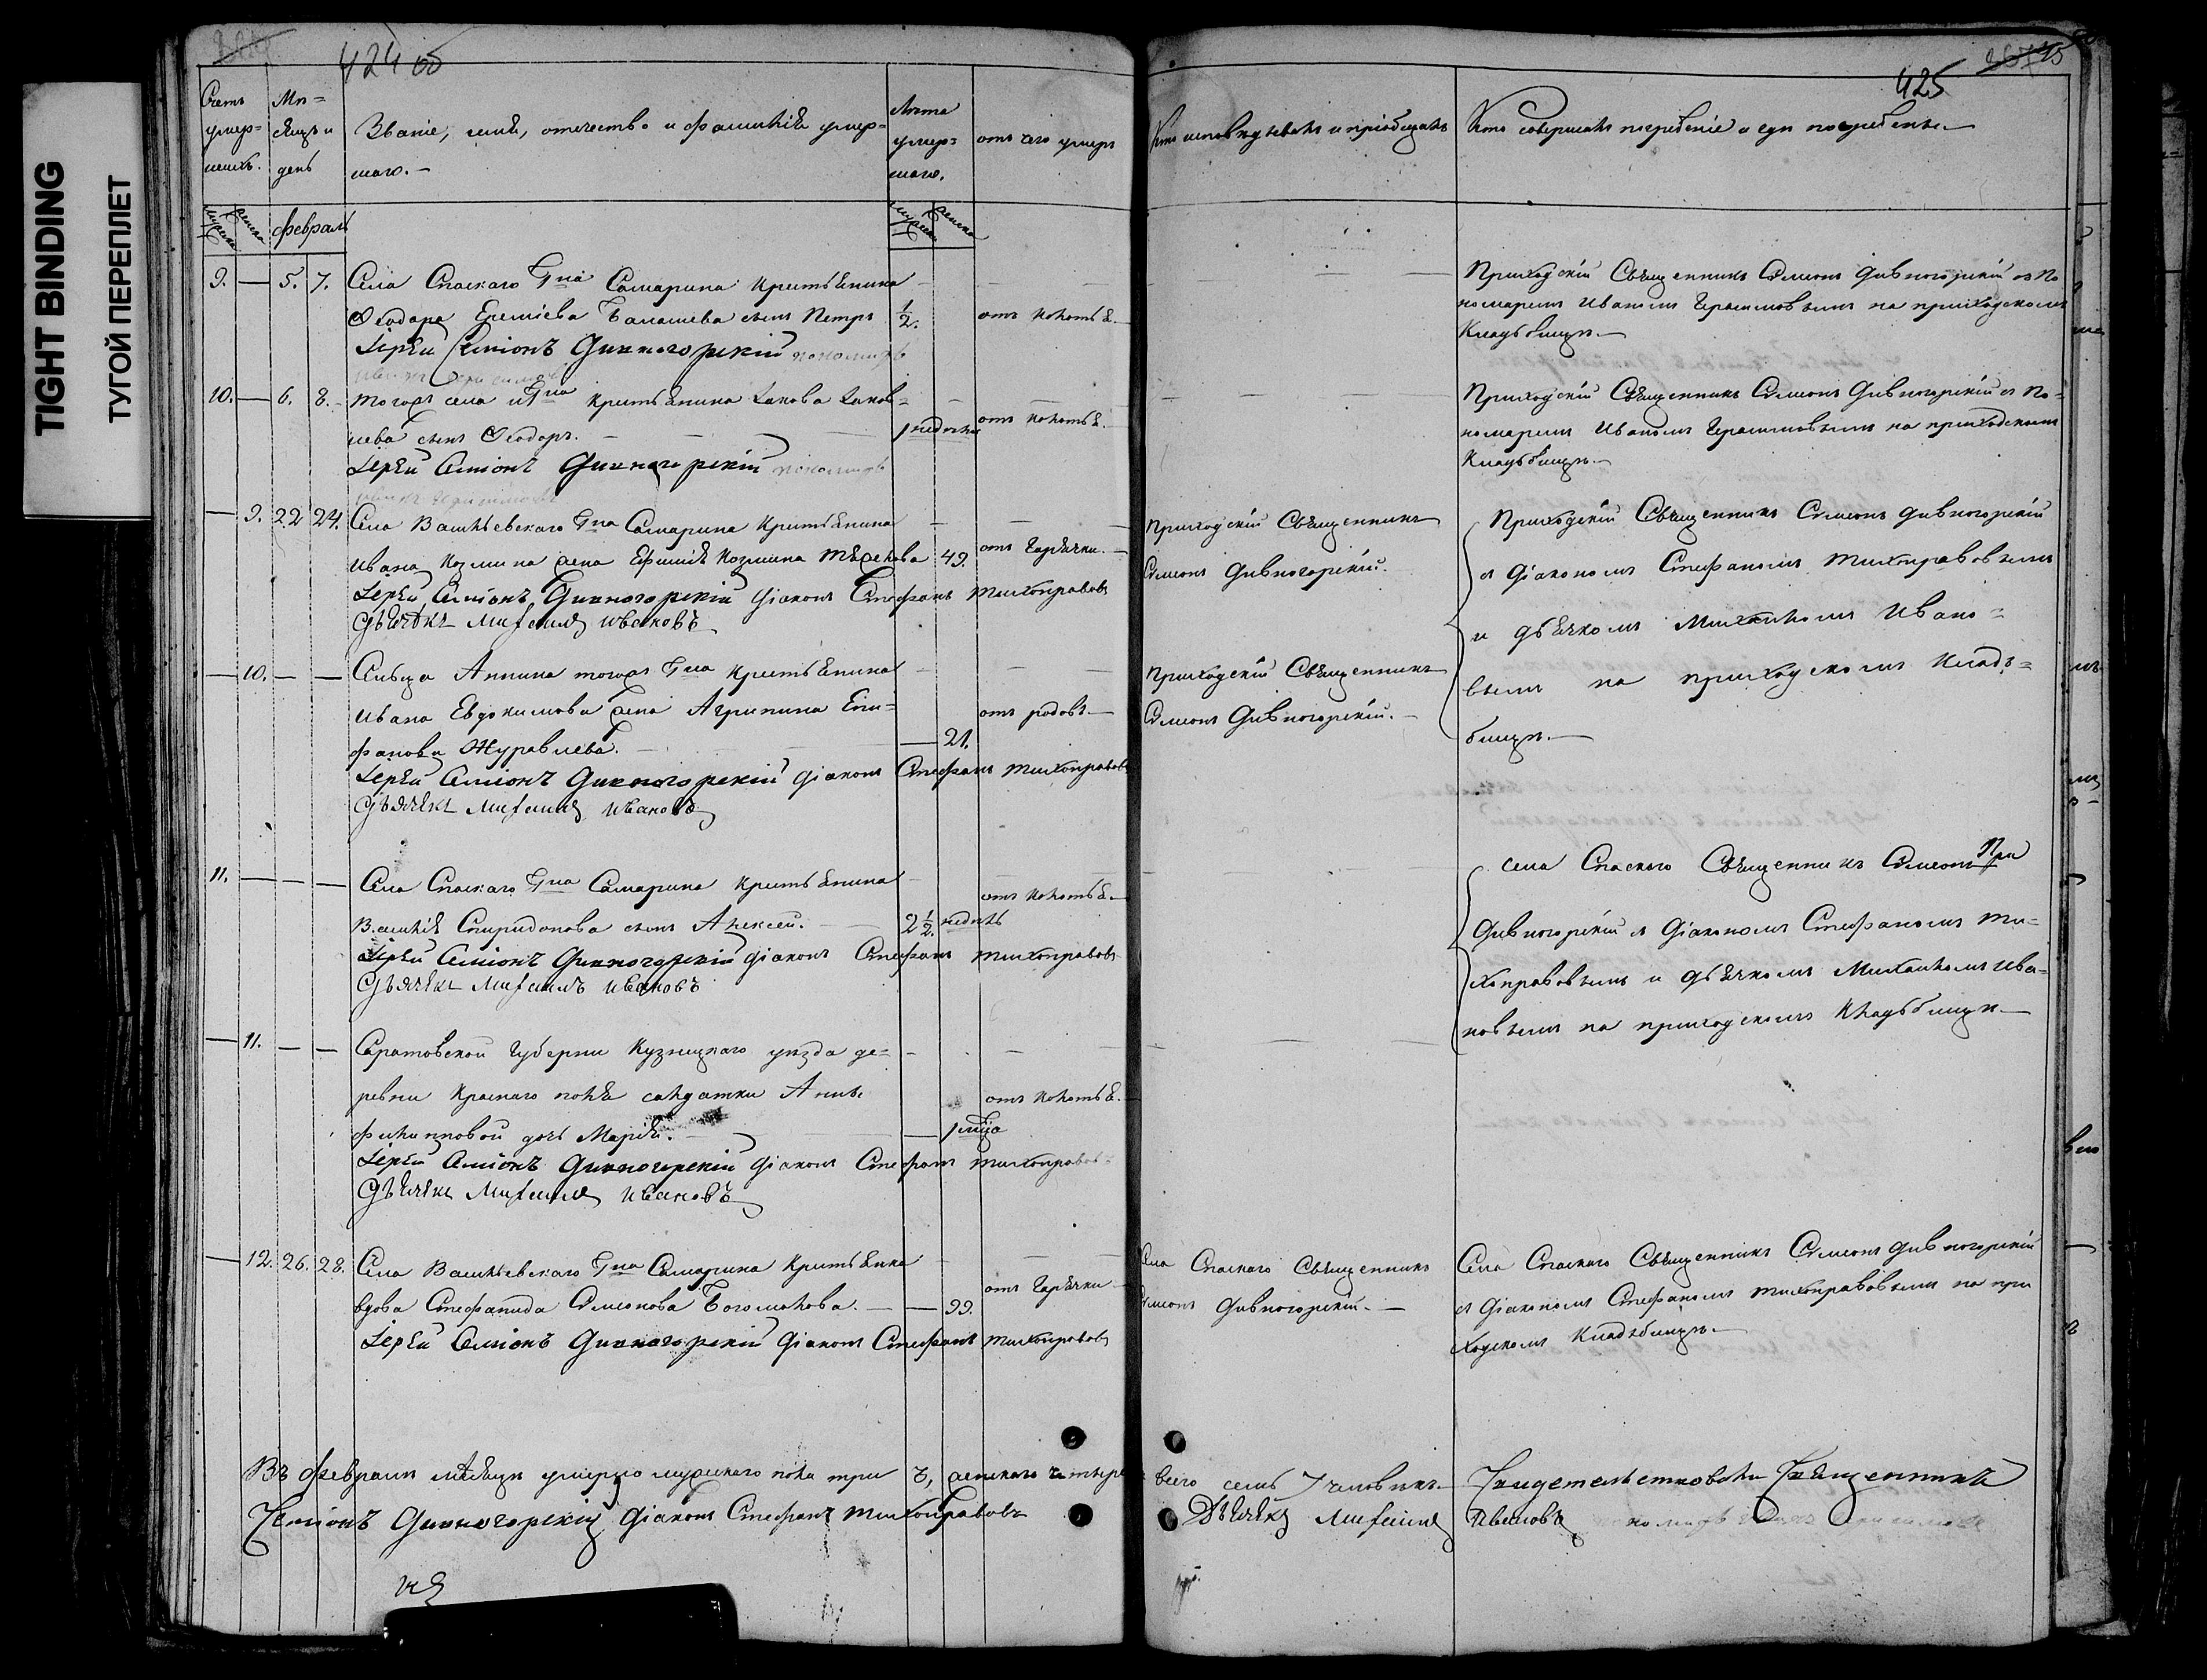 TIGHT BINDING
ТУГОЙ ПЕРЕПЛЕТ
424 об
425
Счетъ умер=шихъ.
Мѣ=сяцъ и день
Званіе, имя, отечество и фамилія умер=шаго.—
Лѣта умер=шаго.
отъ чего умеръ
Кто исповѣдывалъ и пріобщалъ
Кто совершалъ погребеніе и гдѣ погребены.—
мужеска женска февраль мужеска женска
9. — 5. 7. Села Спаскаго Гна Самарина крестьянина
Ѳеодора Еремѣева Балашева сынъ Петръ ½. отъ колотья.—
Іерей Симіонъ Дивногорскій пономарь
Иванъ Герасимовъ
Приходскій Священникъ Симеонъ Дивногорскій съ По
номаремъ Иваномъ Герасимовымъ на приходскомъ
Кладбищѣ.—
10. — 6. 8. тогожъ села и Гна крестьянина Іакова Іаков=
лева сынъ Ѳеодоръ. 1 недѣли отъ колотья.
Іерей Симіонъ Дивногорскій пономарь
Иванъ Герасимовъ
Приходскій Священникъ Симеонъ Дивногорскій съ По=
номаремъ Иваномъ Герасимовымъ на приходскомъ
Кладбищѣ.—
— 9. 22 24. Села Васильевскаго Гна Самарина крестьянина
Ивана Козмина жена Ефимія Козмина 49. отъ горячки.—
Іерей Симіонъ Дивногорскій Діаконъ Стефанъ Тихонравовъ
Дьячекъ Михаилъ Ивановъ
Приходскій Священникъ
Симеонъ Дивногорскій.
Приходскій Священникъ Симеонъ Дивногорскій
съ Діакономъ Стефаномъ Тихонравовымъ
и дьячкомъ Михаиломъ Ивано=
вымъ на приходскомъ Кладъ=
бищѣ.—
— 10. — — Сельца Аннина тогожъ Гна крестьянина
Ивана Евдокимова жена Агрипина Епи=
фанова Журавлева. — 21. отъ родовъ.—
Іерей Симіонъ Дивногорскій Діаконъ Стефанъ Тихонравовъ
Дьячекъ Михаилъ Ивановъ
Приходскій Священникъ
Симеонъ Дивногорскій.—
11. — — — Села Спаскаго Гна Самарина крестьянина
Василія Спиридонова сынъ Алексей. 2½. недѣль отъ колотья.—
Іерей Симіонъ Дивногорскій Діаконъ Стефанъ Тихонравовъ
Дьячекъ Михаилъ Ивановъ
села Спаскаго Священникъ Симеонъ
Дивногорскій съ Діакономъ Стефаномъ Ти=
хонравовымъ и дьячкомъ Михаиломъ Ива=
новымъ на приходскомъ Кладбищѣ.—
— 11. — — Саратовской Губерни Кузнецкаго уѣзда де=
ревни Краснаго поля салдатки Анны
Филиповой дочь Марія. — 1 мца отъ колотья.
Іерей Симіонъ Дивногорскій Діаконъ Стефанъ Тихонравовъ
Дьячекъ Михаилъ Ивановъ
— 12. 26. 28. Села Васильевскаго Гна Самарина Крестьянка
вдова Стефанида Симеонова Богомолова. — 99. отъ горячки.—
Іерей Симіонъ Дивногорскій Діаконъ Стефанъ Тихонравовъ
Села Спаскаго Священникъ
Симеонъ Дивногорскій.—
Села Спаскаго Священникъ Симеонъ Дивногорскій
съ Діакономъ Стефаномъ Тихонравовымъ на при
ходскомъ Кладбищѣ.—
Въ февралѣ мѣсяцѣ умерло мужескаго пола три 3, женскаго четыре всего семь 7 человѣкъ.— Свидетельствовали Священникъ
Симіонъ Дивногорскій Діаконъ Стефанъ Тихонравовъ Дьячекъ Михаилъ Ивановъ пономарь Иванъ Герасимовъ